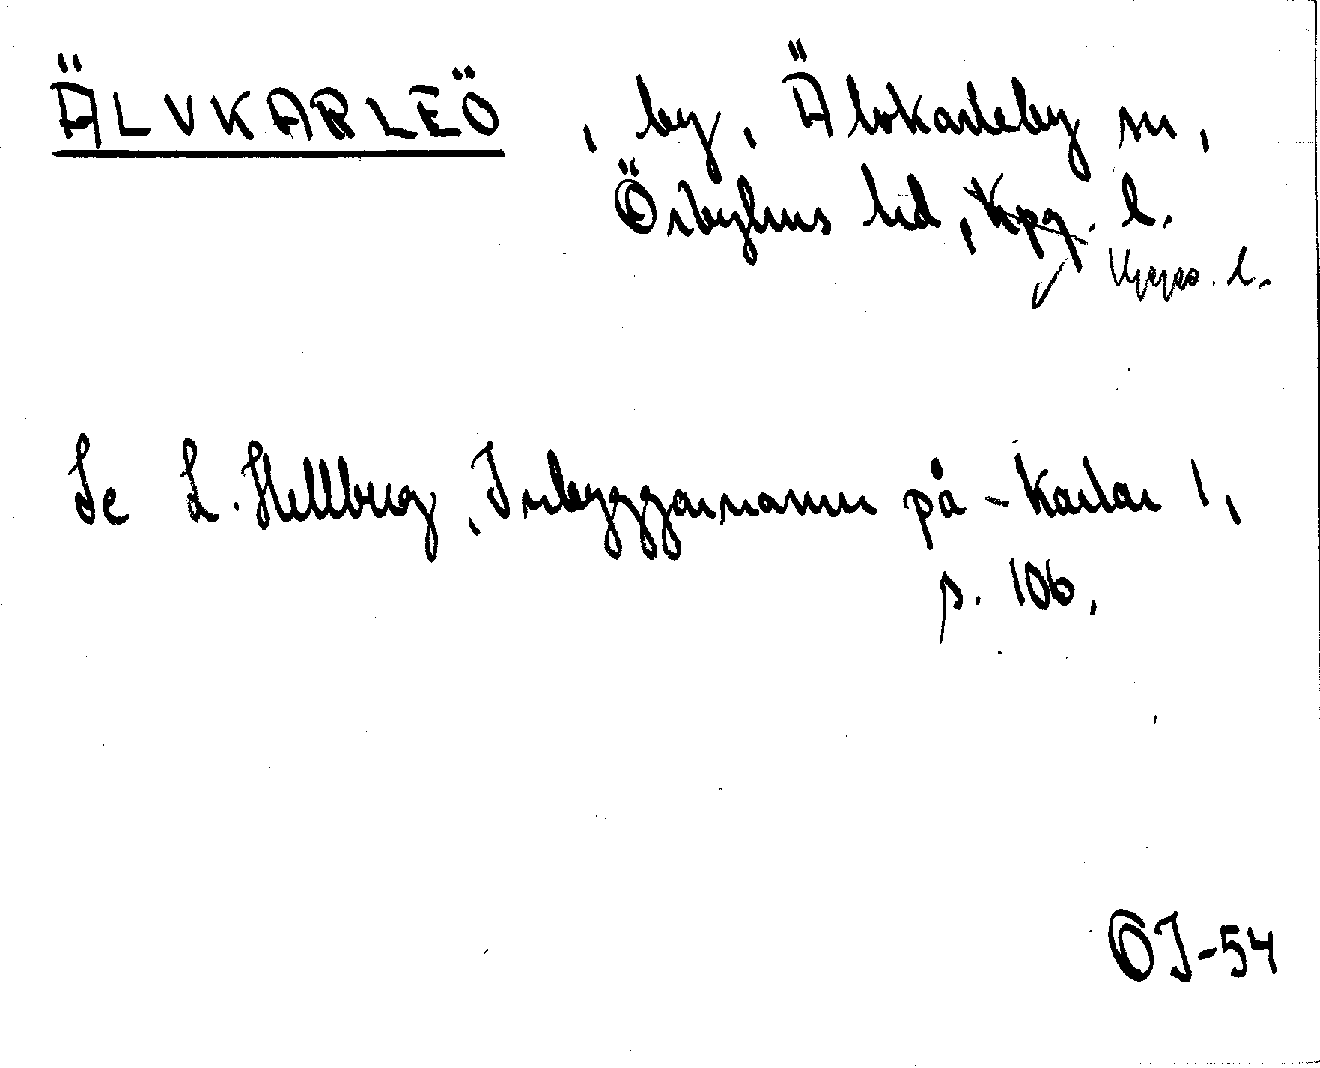 ÄLVKARLEÖ, by, Älvkarleby sn,
Örbyhus hd, Kpg. l.
Upps. l.
Se L. Hellberg, Inbyggarnamn på -karlar 1,
p. 106.
OJ-54